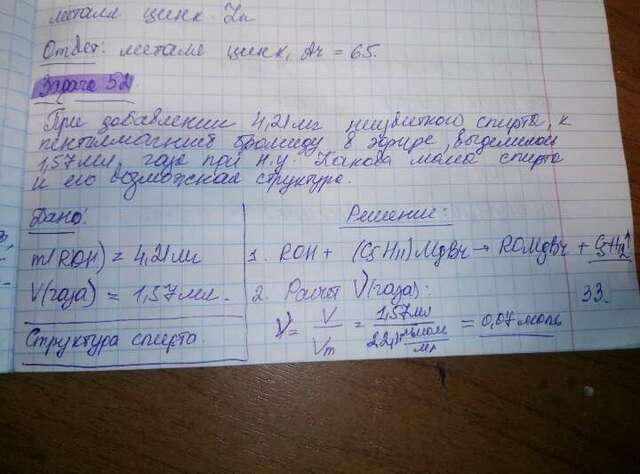 металл цинк. Zn
Ответ: металл цинк, Ar = 65.
Задача 52
При добавлении 4,21 мг неизвестного спирта, к
пентилмагний бромиду в эфире, выделилось
1,57 мл, газа при н.у. Какова масса спирта
и его возможная структура.
Дано:
m(ROH) = 4,21 мг
V(газа) = 1,57 мл.
Структура спирта.
Решение:
1. ROH + (C5H11)MgBr → ROMgBr + C5H12↑
2. Расчет V(газа):
ν = V/Vm = 1,57 мл / 22,4 = 0,07 моль
33.